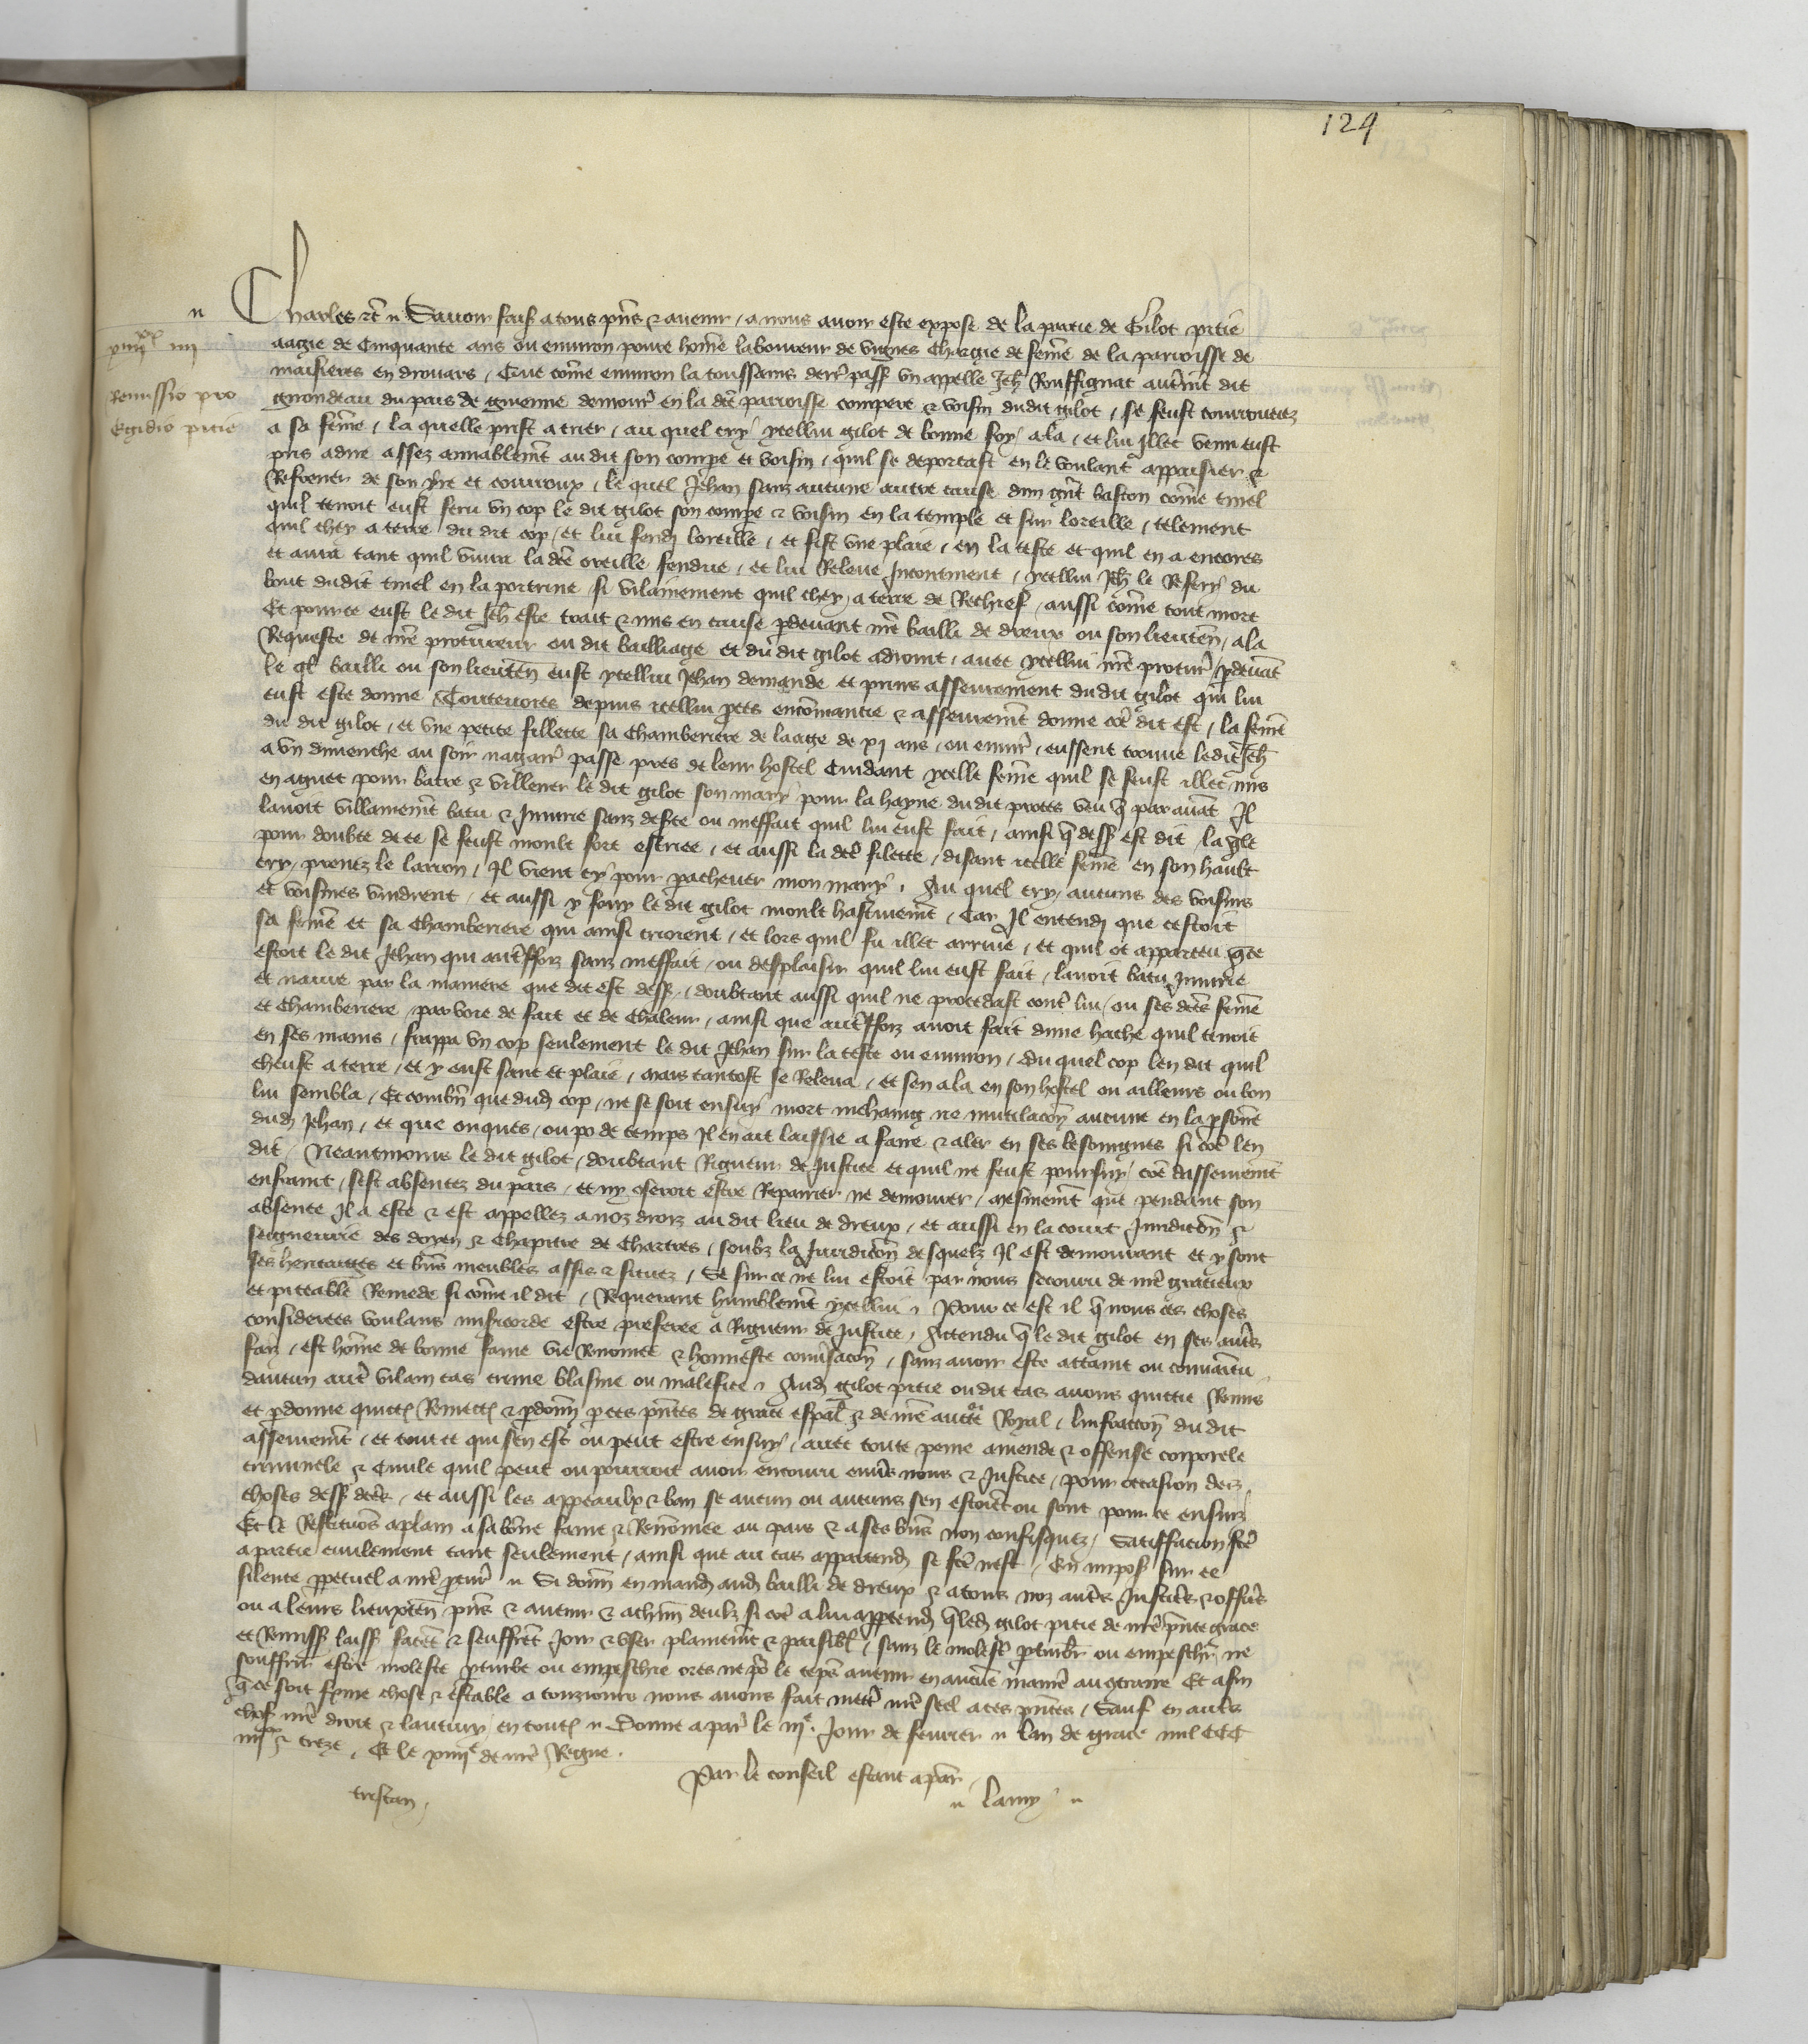 124
n
xiiii xx iiii
Remissio pro
Egidio pitie
Charles etc n Savoir fais a tous pns & avenir / a nous avoir este expose de la partie de Gilot pitie
aagie de Cinquante ans ou environ povre home laboureur de vignes Chargie de feme de la parroisse de
maisieres en drouais / Que come environ la toussains derr pass un appelle Jeh Rouffignat autremt dit
gnondeau du pais de guienne demour en la dce parroisse compere & voisin dudit gilot / se feust courrouciez
a sa feme / la quelle prist a crier / au quel cry ycellui gilot de bonne foy ala / et lui illec venu eust
pris a dire assez amiablemt au dit son compe et voisin / quil se deportast en le voulant appaisier &
Refrener de son yre et courroux / le quel Jehan sanz aucune autre cause dun gnt baston come tinel
quil tenoit eust feru un cop le dit gilot son compe & voisin en la temple et sur loreille / telement
quil chey a terre du dit cop / et lui fendi loreille / et fist une plaie / en la teste et quil en a encores
et aura tant quil vivra la dce oreille fendue / et lui Releve Incontinent / ycellui Jeh le Refery du
bout dudit tinel en la poictrine si vilainement quil chey a terre de Rechief / aussi come tout mort
Et pour ce eust le dit Jeh este trait & mis en cause pdevant nre bailli de dreux ou son lieuten / a la
Requeste de nre procureur ou dit bailliage et du dit gilot adjoint / avec ycellui nre procur / pdevat
le ql bailli ou son lieuten eust ycellui Jehan demande et prins asseurement dudit gilot qui lui
eust este donne & toutevoies depuis icellui pces encomancie & asseuremt donne coe dit est / la feme
du dit gilot / et une petite fillette sa chamberiere de laage de xj ans / ou envir / eussent trouve ledit Jeh
a un dimenche au soir nagair passe pres de leur hostel Cuidant ycelle feme quil se feust illec mis
en aguet pour batre & villener le dit gilot son mary pour la hayne dudit proces veu q par avat Il
lavoit villainemt batu & Injurie sanz deste ou meffait quil lui eust fait / ainsi q dess est dit / la qle
pour doubte de ce se feust moult fort escriee / et aussi la dce filette / disant icelle feme en son hault
cry / prenez le larron / Il vient cy pour pachever mon mary / Au quel cry / aucuns des voisins
et voisines vindrent / et aussi y sorty le dit gilot moult hastivemt / Car Il entendi que cestoit
sa feme et sa chamberiere qui ainsi crioient / et lors quil fu illec arrive / et quil ot apparceu q ce
estoit le dit Jehan qui autreffoiz sanz meffait / ou desplaisir quil lui eust fait / lavoit batu Injurie
et navre par la maniere que dit est dess / doubtant aussi quil ne procedast contre lui / ou ses dces feme
et chamberiere / par voie de fait et de chaleur / ainsi que autreffoiz avoit fait dune hache quil tenoit
en ses mains / frappa un cop seulement le dit Jehan sur la teste ou environ / du quel cop len dit quil
cheust a terre / et y eust sanc et plaie / mais tantost se Releva / et sen ala en son hostel ou ailleurs ou bon
lui sembla / Et combn que dudi cop / ne se soit ensuy mort mehaing ne mutilacon aucune en la psone
dudi Jehan / et que onques / ou po de temps Il en ait laissie a faire & aler en ses besoingnes si coe len
dit / Neantmoins le dit gilot / doubtant Rigueur de Justice et quil ne feust poursuy coe dasseuremt
enfraint / sest absentez du pais / et ny oseroit estre Repairier ne demourer / mesmemt que pendant son
absence Il a este & est appellez a noz droiz au dit lieu de dreux / et aussi en la court Juridicon &
seigneurie des doyen & Chapitre de Chartres / soubz la Juridicon desquelz Il est demourant et y sont
ses heritaiges et bns meubles assis & situez / Se sur ce ne lui estoit par nous secouru de nre gracieux
et piteable Remede si come il dit / Requerant humblemt ycellui / Pour ce est il q nous ces choses
considerees voulans misericorde estre preferee a Rigueur de Justice / Attendu q le dit gilot en ses autrs
faiz / est home de bonne fame vie Renomee & honneste convsacon / sanz avoir este attaint ou convaincu
daucun autre vilain cas crime blasme ou malefice / Audi gilot pitie ou dit cas avons quittie Remis
et pdonne quictos Remectos & pdonos p ces pntes de grace espal & de nre aucte Royal / linfraction du dit
asseuremt / et tout ce qui sen est ou peut estre ensuy / avec toute peine amende & offense corporele
criminele & Civile quil peut ou pourroit avoir encouru envrs nous & Justice / pour occasion des
choses dess dces / et aussi les appeaulx & ban se aucun ou aucuns sen estoiet ou sont pour ce ensuiz
Et le Restituons a plain a sa bone fame & Renomee au pais & a ses bns non confisquez / Satiffacion fce
a partie civilement tant seulement / ainsi que au cas appartendr se fce nest / En impos sur ce
silence ppetuel a nre pcur n Si donn en mandi audi bailli de dreux & a tous noz autrs Justicrs & officrs
ou a leurs lieuxten pns & avenir & a chun deulx si coe a lui apptendr q ledi gilot pitie de nre pnte grace
et Remiss laiss facet & seuffret Joir & user plainemt & paisibl / sanz le molest ptourbr ou empeschr ne
souffrir estre moleste ptourbe ou empeschie ores ne po le teps avenir en aucue manie au qtraire Et afin
q ce soit ferme chose & estable a tousjours nous avons fait mettre nre seel a ces pntes / Sauf en autrs
chos nre droit & lautruy en toutes n Donne a par le iije Jour de fevrier n lan de grace mil CCC
iiij xx & treze / Et le xiiije de nre Regne .
Par le conseil estant a par
tristan / n lamy n